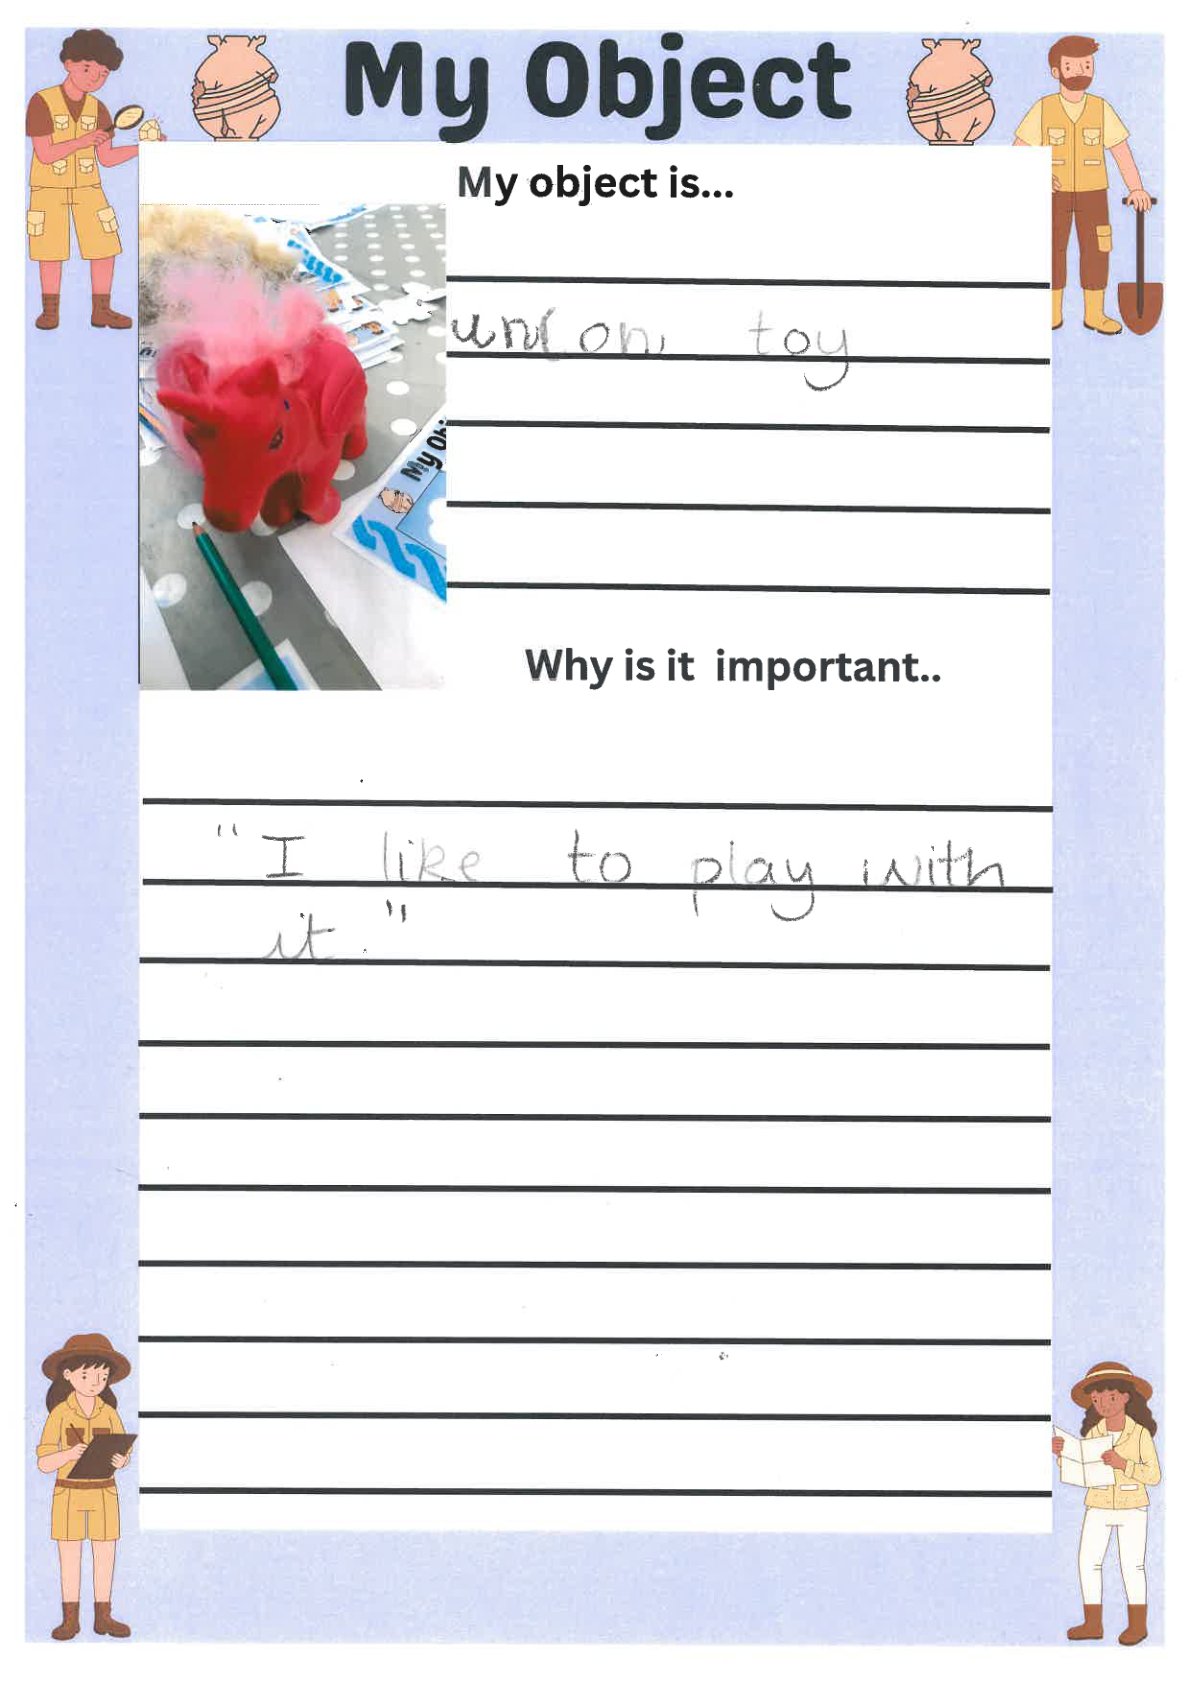 My Object
My object is...
toy
My Ob
Why is it important..
"I like to play with
it."